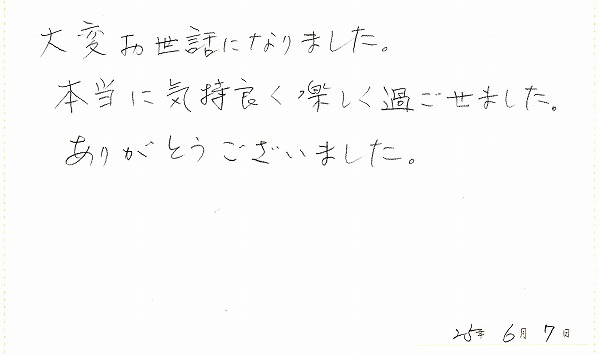 大変お世話になりました。
本当に気持良く楽しく過ごせました。
ありがとうございました。
25年 6月 7日